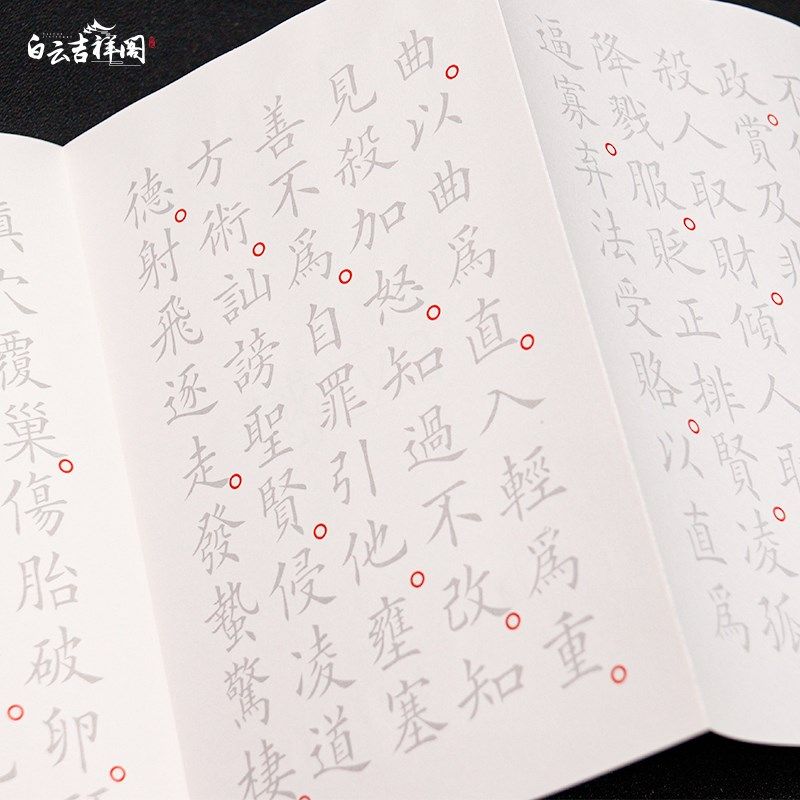 政。賞及非
殺人取財。傾人取
降戮服。貶正排賢。凌孤
逼寡。弃法受賂。以直爲
曲。以曲爲直。入輕爲重。
見殺加怒。知過不改。知
善不爲。自罪引他。壅塞
方術。訕謗聖賢。侵凌道
德。射飛逐走。發蟄驚棲。
穴覆巢。傷胎破卵。
白云吉祥阁